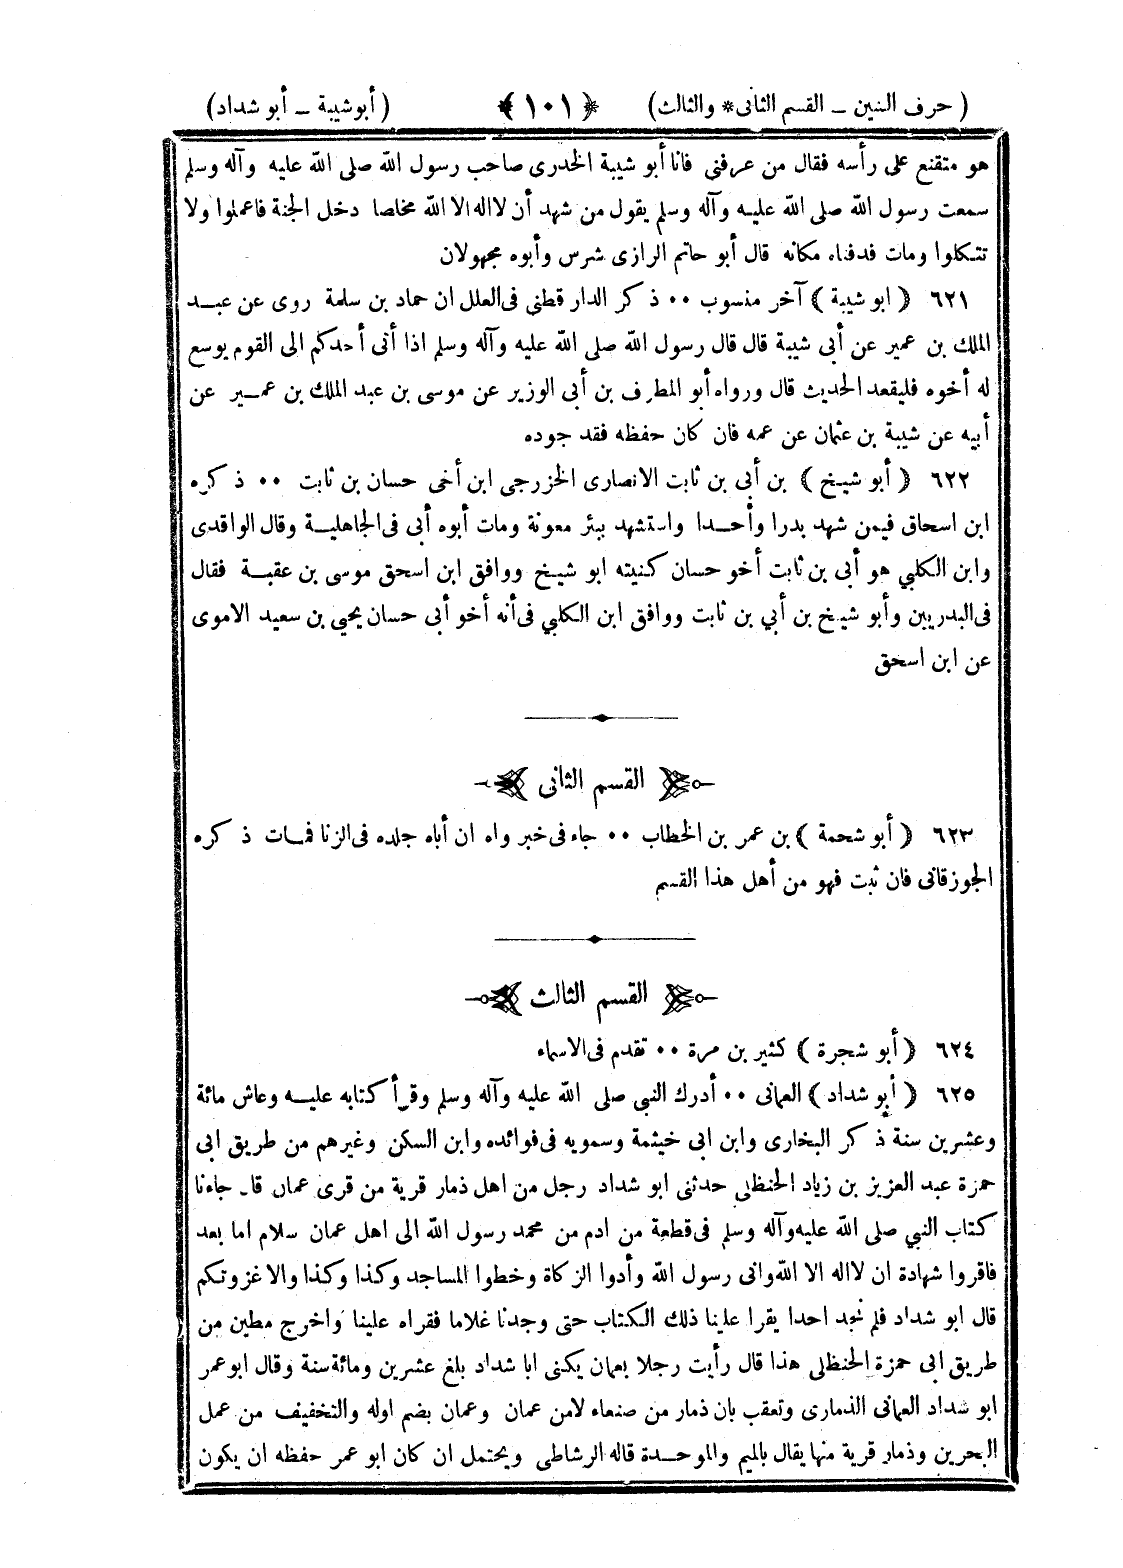 (حرف الشين ـ القسم الثانى* والثالث) ﴿١٠١﴾ (أبوشيبة ـ أبو شداد)
هو متقنع على رأسه فقال من عرفنى فانا أبو شيبة الخدرى صاحب رسول الله صلى الله عليه وآله وسلم
سمعت رسول الله صلى الله عليه وآله وسلم يقول من شهد أن لااله الا الله مخلصا دخل الجنة فاعملوا ولا
تتكلوا ومات فدفناه مكانه قال أبو حاتم الرازى شرس وأبوه مجهولان
٦٢١ ﴿ ابو شيبة ﴾ آخر منسوب ٠٠ ذكر الدار قطنى فى العلل ان حماد بن سلمة روى عن عبد
الملك بن عمير عن أبى شيبة قال قال رسول الله صلى الله عليه وآله وسلم اذا أتى أحدكم الى القوم يوسع
له أخوه فليقعد الحديث قال ورواه أبو المطرف بن أبى الوزير عن موسى بن عبد الملك بن عمير عن
أبيه عن شيبة بن عثمان عن عمه فان كان حفظه فقد جوده
٦٢٢ ﴿ أبو شيخ ﴾ بن أبى بن ثابت الانصارى الخزرجى ابن أخى حسان بن ثابت ٠٠ ذكره
ابن اسحاق فيمن شهد بدرا وأحدا واستشهد ببئر معونة ومات أبوه أبى فى الجاهلية وقال الواقدى
وابن الكلبي هو أبى بن ثابت أخو حسان كنيته ابو شيخ ووافق ابن اسحق موسى بن عقبة فقال
فى البدريين وأبو شيخ بن أبي بن ثابت ووافق ابن الكلبي فى أنه أخو أبى حسان يحيى بن سعيد الاموى
عن ابن اسحق
القسم الثانى
٦٢٣ ﴿ أبو شحمة ﴾ بن عمر بن الخطاب ٠٠ جاء فى خبر واه ان أباه جلده فى الزنا فمات ذكره
الجوزقانى فان ثبت فهو من أهل هذا القسم
القسم الثالث
٦٢٤ ﴿ أبو شجرة ﴾ كثير بن مرة ٠٠ تقدم فى الاسماء
٦٢٥ ﴿ أبو شداد ﴾ العمانى ٠٠ أدرك النبي صلى الله عليه وآله وسلم وقرأ كتابه عليه وعاش مائة
وعشرين سنة ذكر البخارى وابن ابى خيثمة وسمويه فى فوائده وابن السكن وغيرهم من طريق ابى
حمزة عبد العزيز بن زياد الحنظلى حدثنى ابو شداد رجل من اهل ذمار قرية من قرى عمان قال جاءنا
كتاب النبي صلى الله عليه وآله وسلم فى قطعة من ادم من محمد رسول الله الى اهل عمان سلام اما بعد
فاقروا شهادة ان لااله الا الله وانى رسول الله وأدوا الزكاة وخطوا المساجد وكذا وكذا والا غزوتكم
قال ابو شداد فلم نجد احدا يقرا علينا ذلك الكتاب حتى وجدنا غلاما فقراه علينا واخرج مطين من
طريق ابى حمزة الحنظلى هذا قال رأيت رجلا بعمان يكنى ابا شداد بلغ عشرين ومائة سنة وقال ابو عمر
ابو شداد العمانى الذمارى وتعقب بان ذمار من صنعاء لامن عمان وعمان بضم اوله والتخفيف من عمل
البحرين وذمار قرية منها يقال بالميم والموحدة قاله الرشاطى ويحتمل ان كان ابو عمر حفظه ان يكون